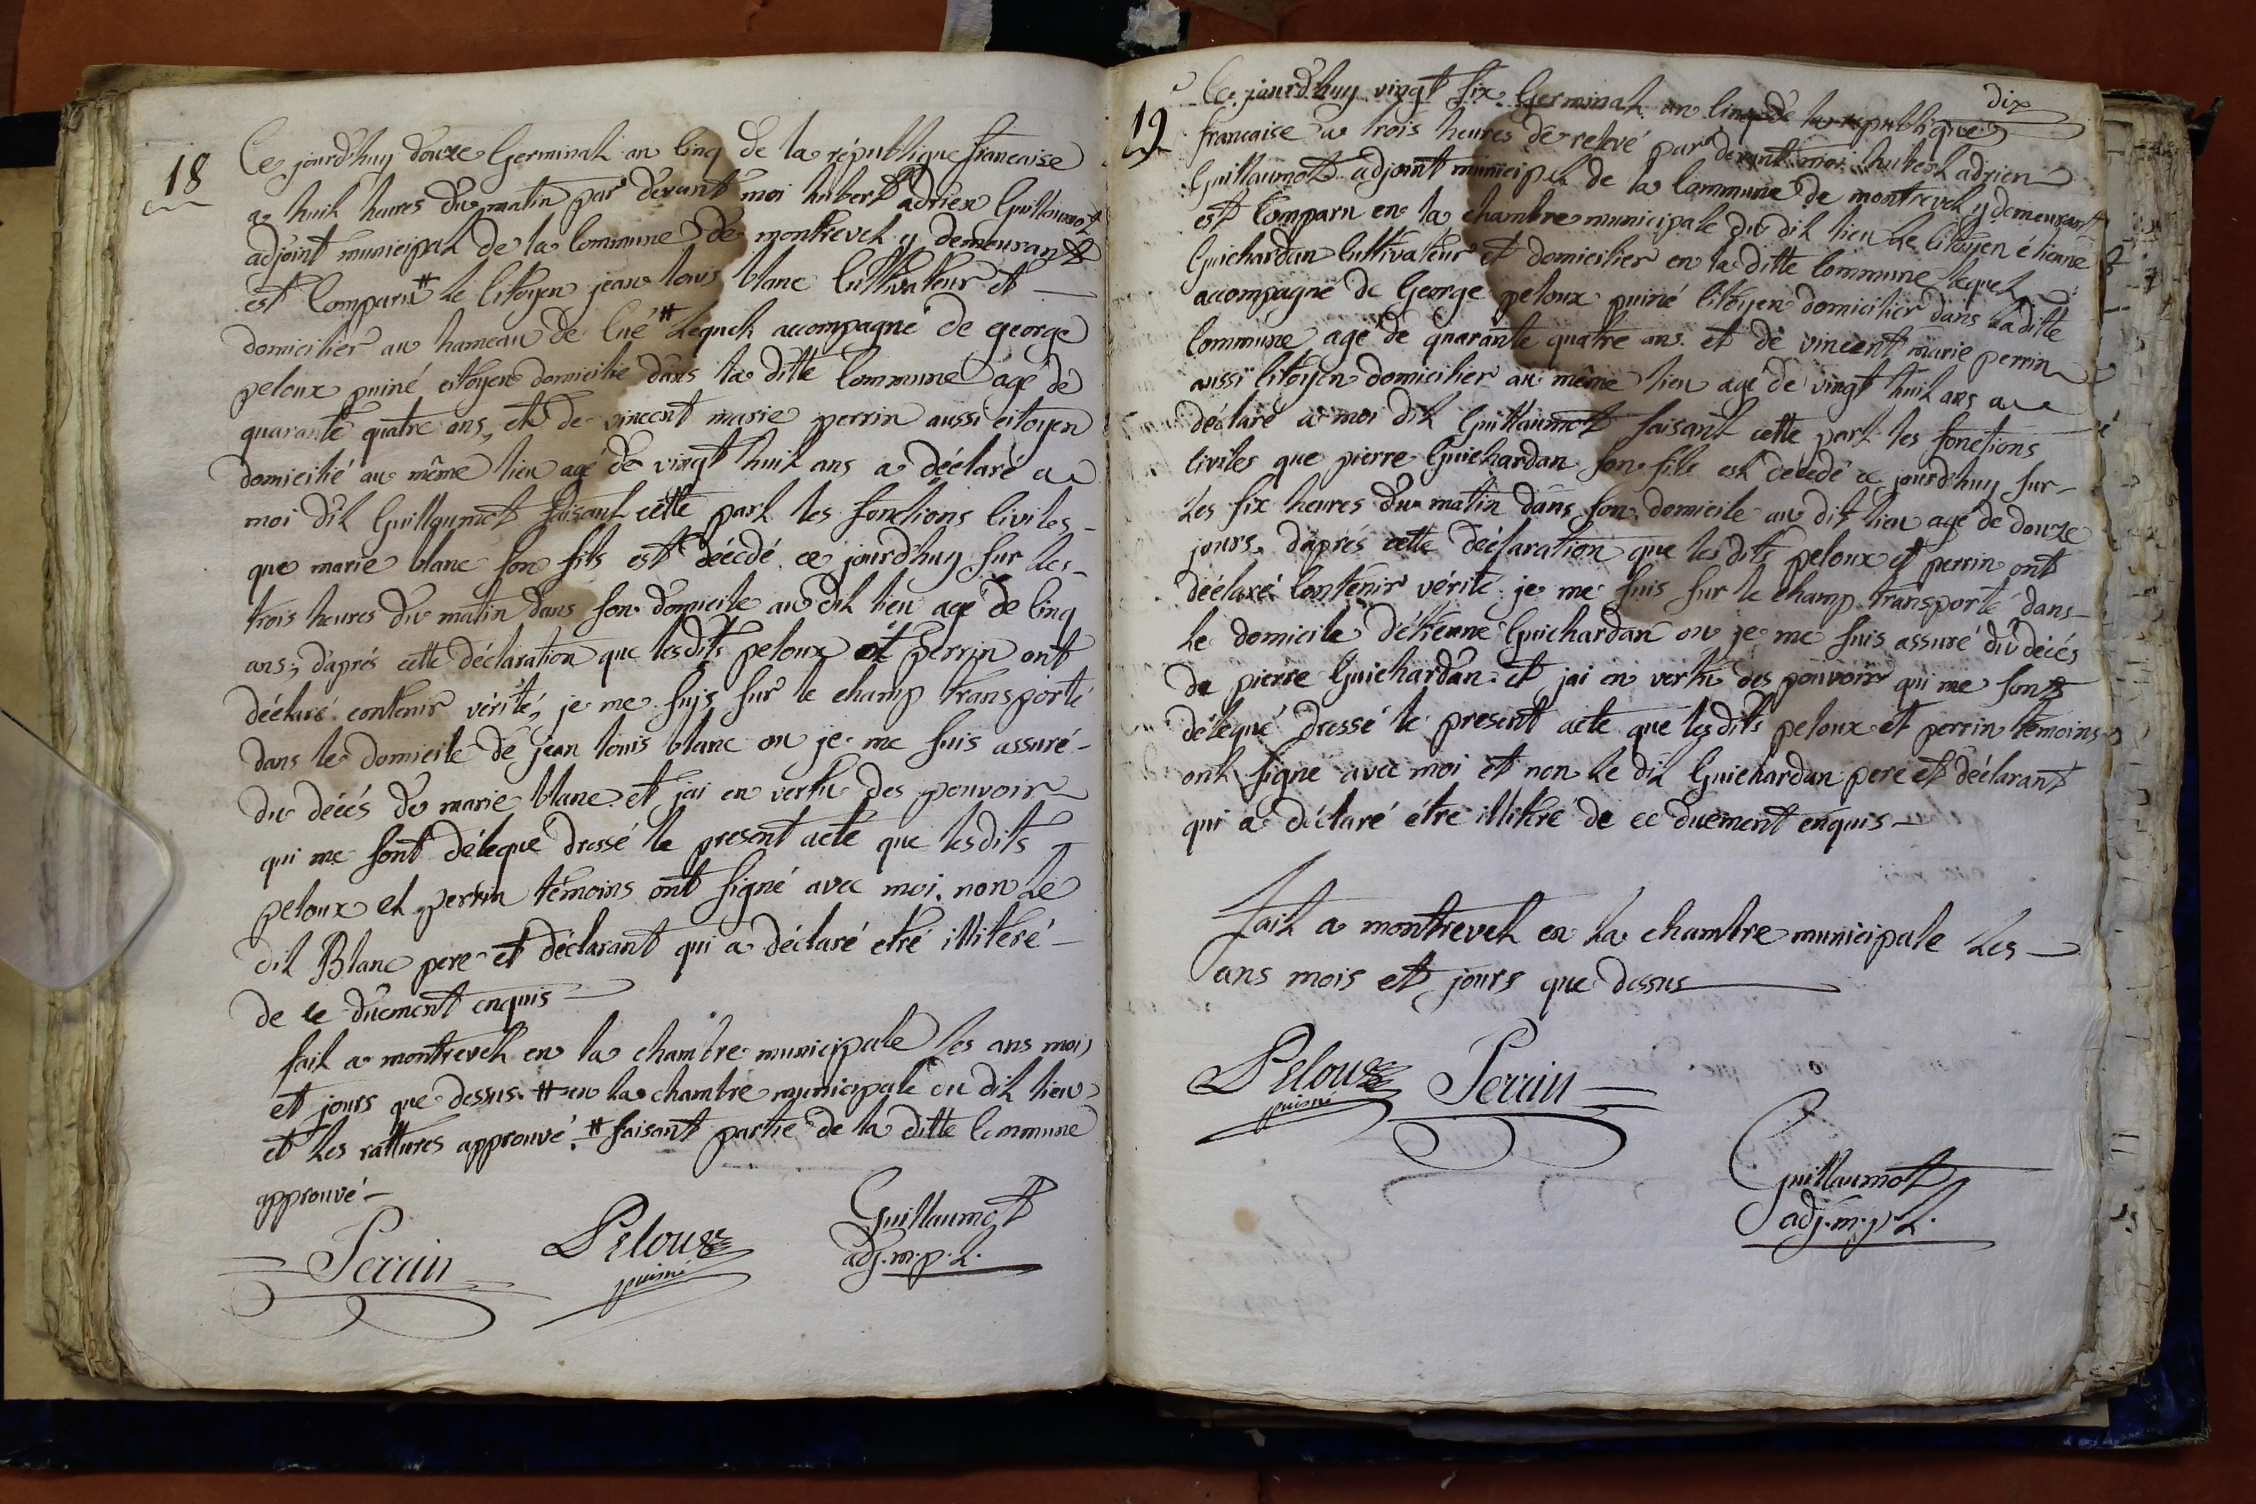 18
Ce jourd'huy douze Germinal an Cinq de la république francaise
a huit heures du matin par devant moi hubert adrien Guillaumot
adjoint municipal de la Commune de montrevel y demeurant
est Comparu # Le Citoyen jean louis blanc Cultivateur et
domicilier au hameau de Cué # Lequel accompagné de george
peloux puiné citoyen domicilié dans la ditte Commune agé de
quarante quatre ans, et de vincent marie perrin aussi citoyen
domicilié au même lieu agé de vingt huit ans a déclaré a
moi dit Guillaumot faisant cette part les fonctions Civiles
que marie blanc son fils est décédé ce jourd'huy sur les
trois heures du matin dans son domicile au dit lieu agé de Cinq
ans; d'aprés cette déclaration que lesdits peloux et perrin ont
déclaré contenir vérité, je me suis sur le champ transporté
dans le domicile de jean louis blanc ou je me suis assuré
du décés de marie blanc et j'ai en vertu des pouvoir
qui me sont délegué dressé le present acte que lesdits
peloux et perrin témoins ont signé avec moi. non Le
dit Blanc pere et déclarant qui a déclaré etre illiteré
de ce duement enquis
fait a montrevel en la chambre municipale les ans mois
et jours que dessus # en la chambre municipale du dit lieu
et les rattures approuvé. # faisant partie de la ditte Commune
approuvé
Perrin Peloux Guillaumot
puiné adj. m. p. L.
dix
19
Ce jourd'huy vingt six Germinal an Cinq de la république
francaise a trois heures de relevé par devant moi hubert adrien
Guillaumot adjoint municipal de la Commune de montrevel y demeurant
est Comparu en la chambre municipale du dit lieu Le Citoyen étienne
Guichardan Cultivateur et domicilier en la ditte Commune lequel
accompagné de George peloux puiné Citoyen domicilier dans ladite
Commune agé de quarante quatre ans et de vincent marie perrin
aussi Citoyen domicilier au même lieu agé de vingt huit ans a
déclaré a moi dit Guillaumot faisant cette part les fonctions
Civiles que pierre Guichardan son fils est décedé ce jourd'huy sur
Les six heures du matin dans son domicile au dit lieu agé de douze
jours. d'aprés cette déclaration que lesdits peloux et perrin ont
déclaré Contenir vérité je me suis sur le champ transporté dans
Le domicile d'étienne Guichardan ou je me suis assuré du décés
de pierre Guichardan. et jai en vertu des pouvoir qui me sont
délegué dressé le present acte que lesdits peloux et perrin témoins
ont signé avec moi et non Le dit Guichardan pere et déclarant
qui a déclaré étre illitéré de ce duement enquis
Fait a montrevel en La chambre municipale Les
ans mois et jours que dessus
Peloux Perrin
puiné
Guillaumot
adj. m. p. L.